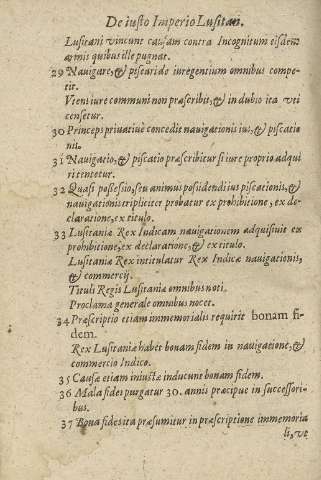 De iusto Imperio Lusitan.
Lusitani vincunt causam contra Incognitum eisdem
armis quibus ille pugnat.
29 Navigare, & piscari de iure gentium omnibus compe-
tit.
Vtens iure communi non præscribit, & in dubio ita vti
censetur.
30 Princeps privativè concedit navigationis ius, & piscatio
nis.
31 Navigatio, & piscatio præscribitur si iure proprio adqui
ri tentetur.
32 Quasi possessio, seu animus possidendi ius piscationis, &
navigationis tripliciter probatur ex prohibitione, ex de-
claratione, ex titulo.
33 Lusitaniæ Rex Indicam navigationem adquisivit ex
prohibitione, ex declaratione, & ex titulo.
Lusitaniæ Rex intitulatur Rex Indicæ navigationis,
& commercij.
Tituli Regis Lusitaniæ omnibus noti.
Proclama generale omnibus nocet.
34 Præscriptio etiam immemorialis requirit bonam fi-
dem.
Rex Lusitaniæ habet bonam fidem in navigatione, &
commercio Indico.
35 Causæ etiam iniustæ inducunt bonam fidem.
36 Mala fides purgatur 30. annis præcipue in successori-
bus.
37 Bona fides ita præsumitur in præscriptione immemoria
li, vt